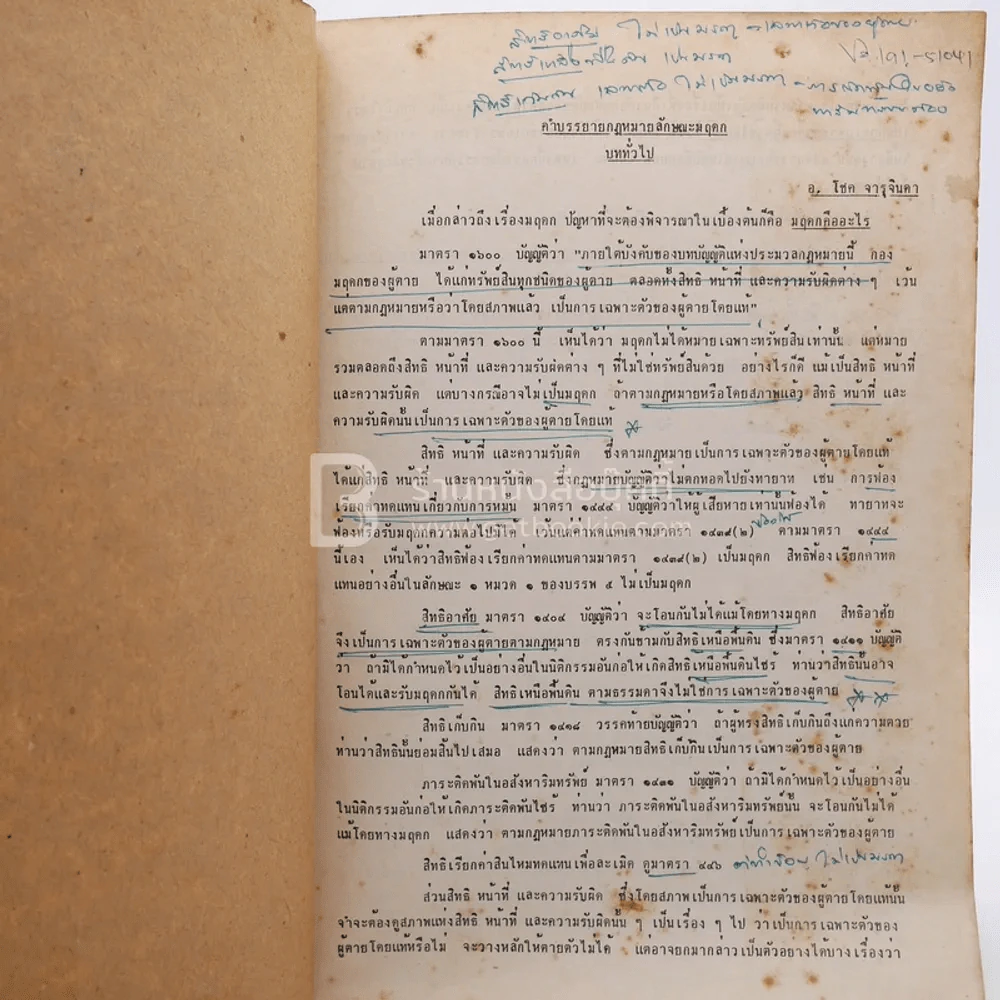 สิทธิอาศัย ไม่เป็นมรดก
สิทธิเหนือพื้นดิน เป็นมรดก
สิทธิเก็บกิน ไม่เป็นมรดก
คำบรรยายกฎหมายลักษณะมฤดก
บททั่วไป
อ. โชค จารุจินดา
เมื่อกล่าวถึงเรื่องมฤดก ปัญหาที่จะต้องพิจารณาในเบื้องต้นก็คือ มฤดกคืออะไร
มาตรา ๑๖๐๐ บัญญัติว่า "ภายใต้บังคับของบทบัญญัติแห่งประมวลกฎหมายนี้ กอง
มฤดกของผู้ตาย ได้แก่ทรัพย์สินทุกชนิดของผู้ตาย ตลอดทั้งสิทธิ หน้าที่ และความรับผิดต่าง ๆ เว้น
แต่ตามกฎหมายหรือว่าโดยสภาพแล้ว เป็นการเฉพาะตัวของผู้ตายโดยแท้"
ตามมาตรา ๑๖๐๐ นี้ เห็นได้ว่า มฤดกไม่ได้หมายเฉพาะทรัพย์สินเท่านั้น แต่หมาย
รวมตลอดถึงสิทธิ หน้าที่ และความรับผิดต่าง ๆ ที่ไม่ใช่ทรัพย์สินด้วย อย่างไรก็ดี แม้เป็นสิทธิ หน้าที่
และความรับผิด แต่บางกรณีอาจไม่เป็นมฤดก ถ้าตามกฎหมายหรือโดยสภาพแล้ว สิทธิ หน้าที่ และ
ความรับผิดนั้นเป็นการเฉพาะตัวของผู้ตายโดยแท้
สิทธิ หน้าที่ และความรับผิด ซึ่งตามกฎหมายเป็นการเฉพาะตัวของผู้ตายโดยแท้
ได้แก่สิทธิ หน้าที่ และความรับผิด ซึ่งกฎหมายบัญญัติว่าไม่ตกทอดไปยังทายาท เช่น การฟ้อง
เรียกค่าทดแทนเกี่ยวกับการหมั้น มาตรา ๑๔๔๔ บัญญัติว่าให้ผู้เสียหายเท่านั้นฟ้องได้ ทายาทจะ
ฟ้องหรือรับมฤดกความต่อไปมิได้ เว้นแต่ค่าทดแทนตามมาตรา ๑๔๓๙(๒) ตามมาตรา ๑๔๔๔
นี้เอง เห็นได้ว่าสิทธิฟ้องเรียกค่าทดแทนตามมาตรา ๑๔๓๙(๒) เป็นมฤดก สิทธิฟ้องเรียกค่าทด
แทนอย่างอื่นในลักษณะ ๑ หมวด ๑ ของบรรพ ๕ ไม่เป็นมฤดก
สิทธิอาศัย มาตรา ๑๔๐๔ บัญญัติว่า จะโอนกันไม่ได้แม้โดยทางมฤดก สิทธิอาศัย
จึงเป็นการเฉพาะตัวของผู้ตายตามกฎหมาย ตรงกันข้ามกับสิทธิเหนือพื้นดิน ซึ่งมาตรา ๑๔๑๑ บัญญัติ
ว่า ถ้ามิได้กำหนดไว้เป็นอย่างอื่นในนิติกรรมอันก่อให้เกิดสิทธิเหนือพื้นดินไซร้ ท่านว่าสิทธินั้นอาจ
โอนได้และรับมฤดกกันได้ สิทธิเหนือพื้นดิน ตามธรรมดาจึงไม่ใช่การเฉพาะตัวของผู้ตาย
สิทธิเก็บกิน มาตรา ๑๔๑๘ วรรคท้ายบัญญัติว่า ถ้าผู้ทรงสิทธิเก็บกินถึงแก่ความตาย
ท่านว่าสิทธินั้นย่อมสิ้นไปเสมอ แสดงว่า ตามกฎหมายสิทธิเก็บกินเป็นการเฉพาะตัวของผู้ตาย
ภาระติดพันในอสังหาริมทรัพย์ มาตรา ๑๔๓๑ บัญญัติว่า ถ้ามิได้กำหนดไว้เป็นอย่างอื่น
ในนิติกรรมอันก่อให้เกิดภาระติดพันไซร้ ท่านว่า ภาระติดพันในอสังหาริมทรัพย์นั้น จะโอนกันไม่ได้
แม้โดยทางมฤดก แสดงว่า ตามกฎหมายภาระติดพันในอสังหาริมทรัพย์เป็นการเฉพาะตัวของผู้ตาย
สิทธิเรียกค่าสินไหมทดแทนเพื่อละเมิด ดูมาตรา ๔๔๖ ไม่เป็นมรดก
ส่วนสิทธิ หน้าที่ และความรับผิด ซึ่งโดยสภาพเป็นการเฉพาะตัวของผู้ตายโดยแท้นั้น
จำจะต้องดูสภาพแห่งสิทธิ หน้าที่ และความรับผิดนั้น ๆ เป็นเรื่อง ๆ ไป ว่าเป็นการเฉพาะตัวของ
ผู้ตายโดยแท้หรือไม่ จะวางหลักให้ตายตัวไม่ได้ แต่อาจยกมากล่าวเป็นตัวอย่างได้บางเรื่องว่า
ร้านหนังสือบุ๊คกี้
www.getbookie.com